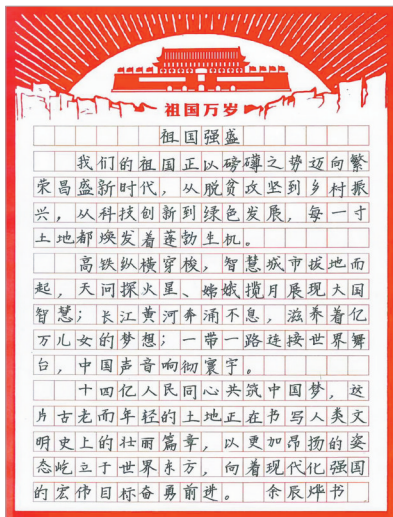 祖国万岁
祖国强盛
我们的祖国正以磅礴之势迈向繁
荣昌盛新时代，从脱贫攻坚到乡村振
兴，从科技创新到绿色发展，每一寸
土地都焕发着蓬勃生机。
高铁纵横穿梭，智慧城市拔地而
起，天问探火星、嫦娥揽月展现大国
智慧；长江黄河奔涌不息，滋养着亿
万儿女的梦想；一带一路连接世界舞
台，中国声音响彻寰宇。
十四亿人民同心共筑中国梦，这
片古老而年轻的土地正在书写人类文
明史上的壮丽篇章，以更加昂扬的姿
态屹立于世界东方，向着现代化强国
的宏伟目标奋勇前进。 余辰烨书